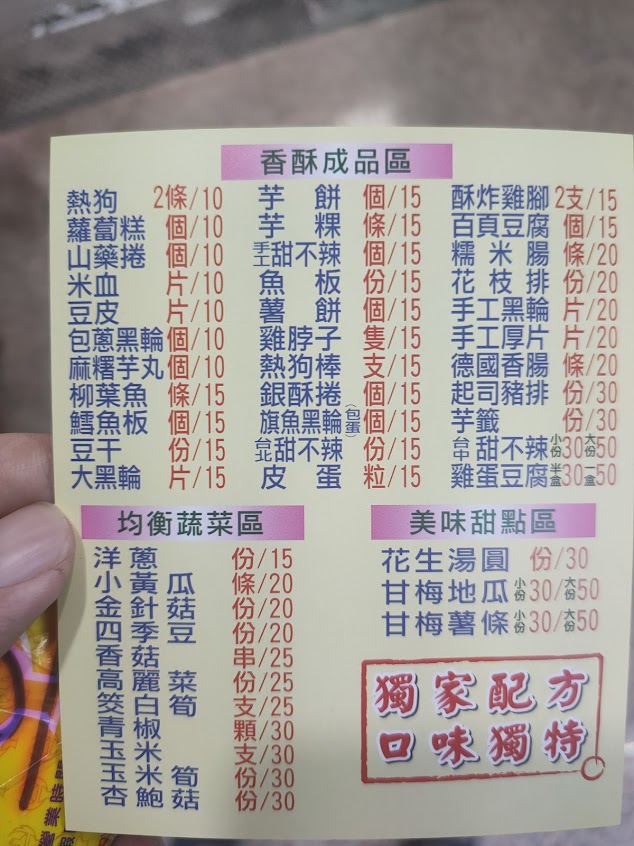 香酥成品區
熱狗 2條/10
蘿蔔糕 個/10
山藥捲 個/10
米血 片/10
豆皮 片/10
包蔥黑輪 個/10
麻糬芋丸 個/10
柳葉魚 條/15
鱈魚板 個/15
豆干 份/15
大黑輪 片/15
芋餅 個/15
芋粿 條/15
手工甜不辣 個/15
魚板 份/15
薯餅 個/15
雞脖子 隻/15
熱狗棒 支/15
銀酥捲 個/15
旗魚黑輪(包蛋) 個/15
台北甜不辣 份/15
皮蛋 粒/15
酥炸雞腳 2支/15
百頁豆腐 個/15
糯米腸 條/20
花枝排 份/20
手工黑輪 片/20
手工厚片 片/20
德國香腸 條/20
起司豬排 份/30
芋籤 份/30
台中甜不辣 小份30 大份50
雞蛋豆腐 半盒30 一盒50
均衡蔬菜區
洋蔥 份/15
小黃瓜 條/20
金針菇 份/20
四季豆 份/20
香菇 串/25
高麗菜 份/25
筊白筍 支/25
青椒 顆/30
玉米 支/30
玉米筍 份/30
杏鮑菇 份/30
美味甜點區
花生湯圓 份/30
甘梅地瓜 小份30/大份50
甘梅薯條 小份30/大份50
獨家配方
口味獨特